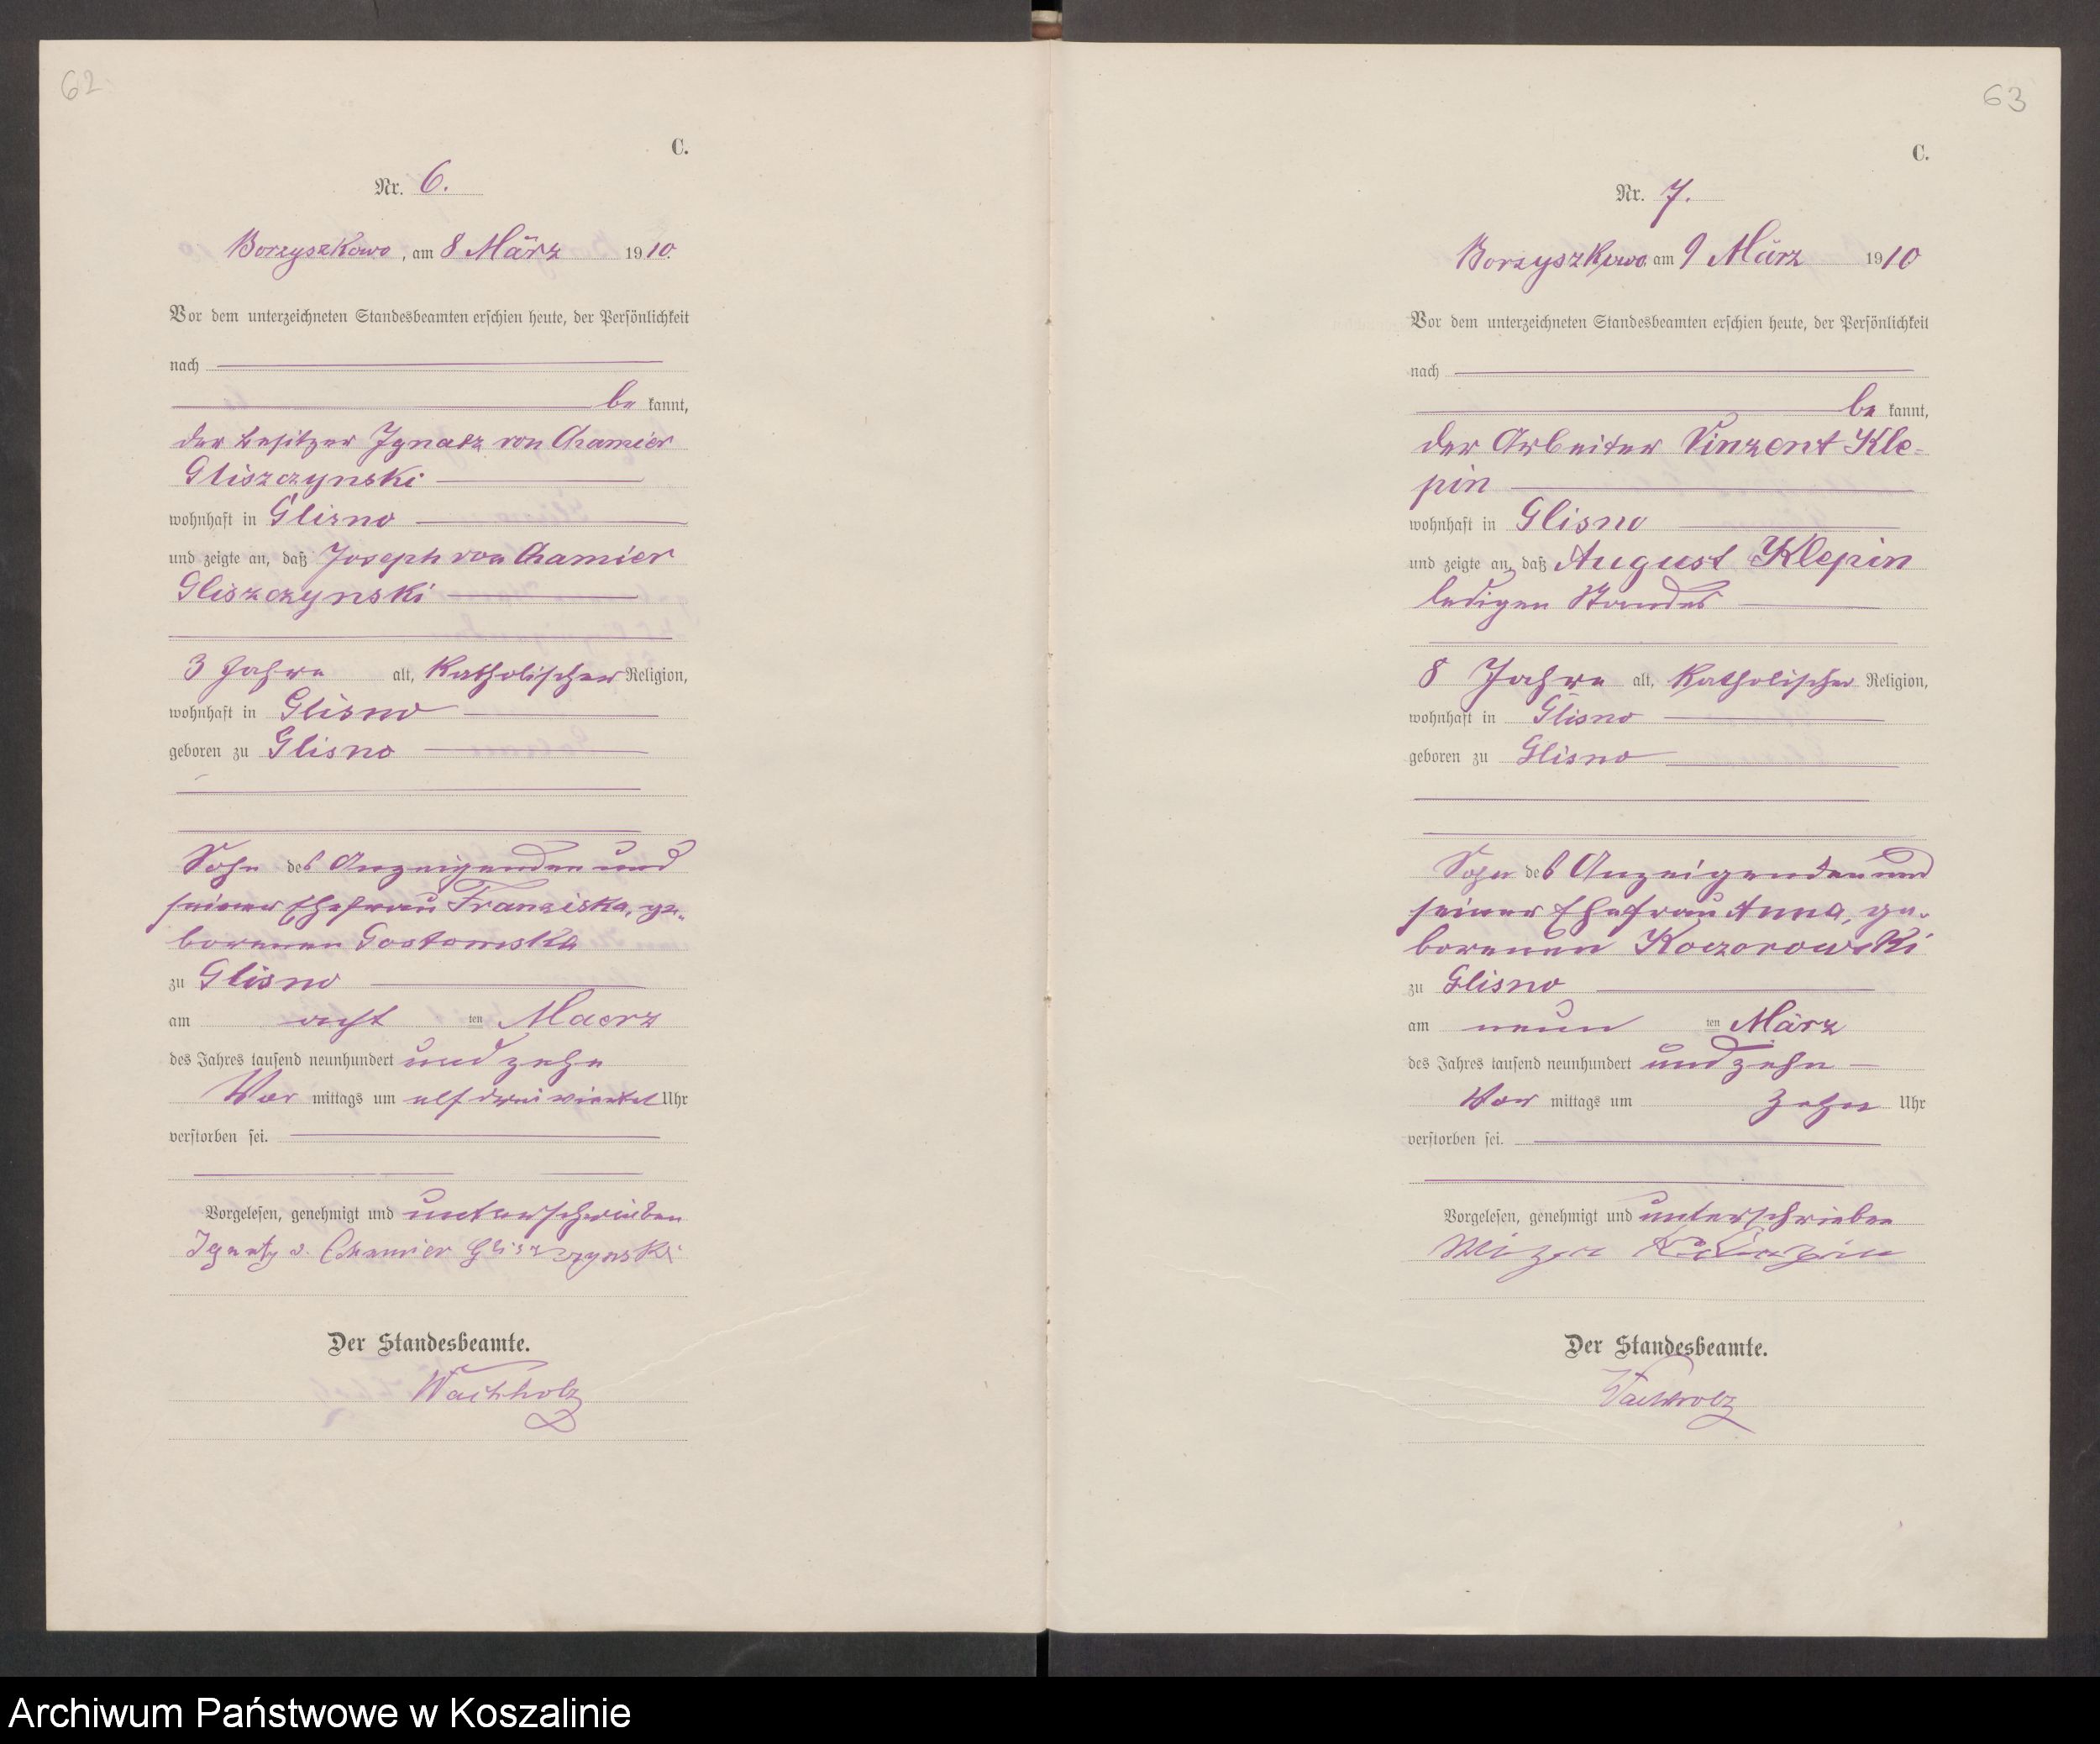 62
C.
Nr. 6.
Borzyszkowo, am 8 März 1910.
Vor dem unterzeichneten Standesbeamten erschien heute, der Persönlichkeit
nach
be kannt,
der Besitzer Ignatz von Chamier
Gliszczynski
wohnhaft in Glisno
und zeigte an, daß Joseph von Chamier
Gliszczynski
3 Jahre alt, Katholischer Religion,
wohnhaft in Glisno
geboren zu Glisno
Sohn des Anzeigenden und
seiner Ehefrau Franziska, ge-
borenen Gostomska
zu Glisno
am acht ten Maerz
des Jahres tausend neunhundert und zehn
Vor mittags um elf dreiviertel Uhr
verstorben sei.
Vorgelesen, genehmigt und unterschrieben
Ignatz v. Chamier Gliszczynski
Der Standesbeamte.
Wachholz
63
C.
Nr. 7.
Borzyszkowo am 9 März 1910
Vor dem unterzeichneten Standesbeamten erschien heute, der Persönlichkeit
nach
be kannt,
der Arbeiter Vinzent Kle-
pin
wohnhaft in Glisno
und zeigte an, daß August Klepin
ledigen Standes
8 Jahre alt, Katholischer Religion,
wohnhaft in Glisno
geboren zu Glisno
Sohn des Anzeigenden und
seiner Ehefrau Anna, ge-
borenen Koczorowski
zu Glisno
am neun ten März
des Jahres tausend neunhundert und zehn
Vor mittags um zehn Uhr
verstorben sei.
Vorgelesen, genehmigt und unterschrieben
Der Standesbeamte.
Wachholz
Archiwum Państwowe w Koszalinie